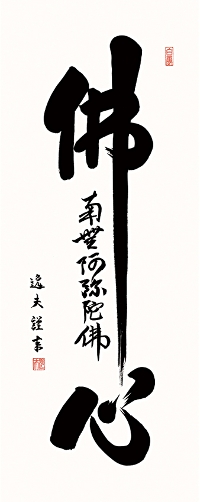 佛心
南無阿弥陀佛
逸夫謹書